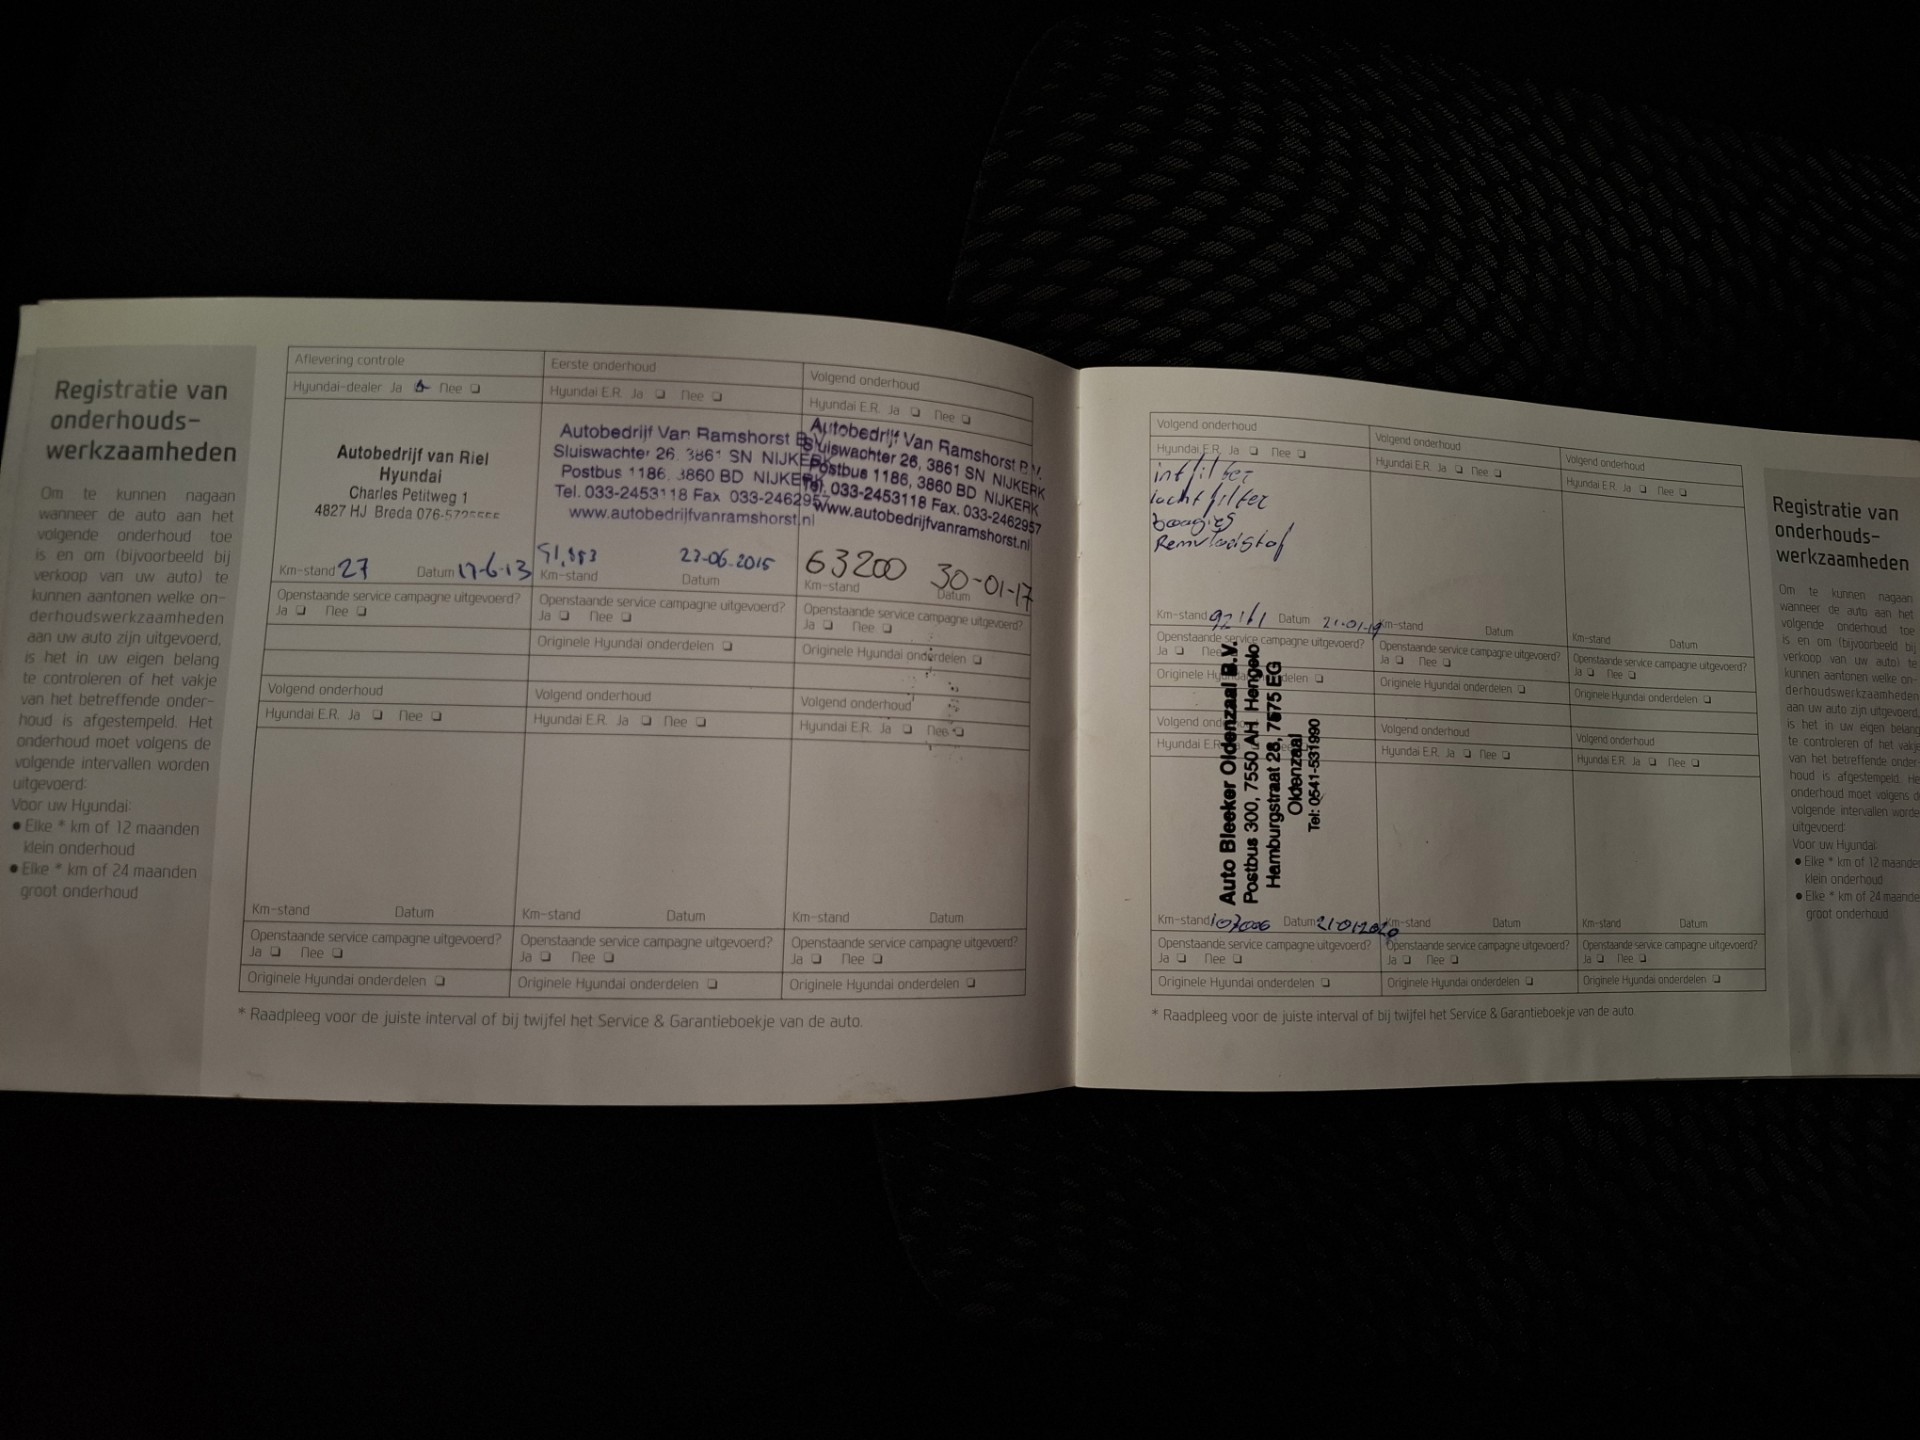 Registratie van
onderhouds-
werkzaamheden
Om te kunnen nagaan
wanneer de auto aan het
volgende onderhoud toe
is en om (bijvoorbeeld bij
verkoop van uw auto) te
kunnen aantonen welke on-
derhoudswerkzaamheden
aan uw auto zijn uitgevoerd,
is het in uw eigen belang
te controleren of het vakje
van het betreffende onder-
houd is afgestempeld. Het
onderhoud moet volgens de
volgende intervallen worden
uitgevoerd:
Voor uw Hyundai:
• Elke * km of 12 maanden
klein onderhoud
• Elke * km of 24 maanden
groot onderhoud
Aflevering controle
Hyundai-dealer Ja Nee
Autobedrijf van Riel
Hyundai
Charles Petitweg 1
4827 HJ Breda
Km-stand 27 Datum 17-6-13
Openstaande service campagne uitgevoerd?
Ja Nee
Eerste onderhoud
Hyundai E.R. Ja Nee
Autobedrijf Van Ramshorst
Sluiswachter 26, 3861 SN NIJKERK
Postbus 1186, 3860 BD NIJKERK
Tel. 033-2453118 Fax 033-2462957
www.autobedrijfvanramshorst.nl
Km-stand Datum 23-06-2015
Openstaande service campagne uitgevoerd?
Ja Nee
Originele Hyundai onderdelen
Volgend onderhoud
Hyundai E.R. Ja Nee
Autobedrijf Van Ramshorst B.V.
Sluiswachter 26, 3861 SN NIJKERK
Postbus 1186, 3860 BD NIJKERK
Tel. 033-2453118 Fax. 033-2462957
www.autobedrijfvanramshorst.nl
63200 30-01-17
Km-stand Datum
Openstaande service campagne uitgevoerd?
Ja Nee
Originele Hyundai onderdelen
Volgend onderhoud
Hyundai E.R. Ja Nee
Km-stand Datum
Openstaande service campagne uitgevoerd?
Ja Nee
Originele Hyundai onderdelen
Volgend onderhoud
Hyundai E.R. Ja Nee
Km-stand Datum
Openstaande service campagne uitgevoerd?
Ja Nee
Originele Hyundai onderdelen
Volgend onderhoud
Hyundai E.R. Ja Nee
Km-stand Datum
Openstaande service campagne uitgevoerd?
Ja Nee
Originele Hyundai onderdelen
* Raadpleeg voor de juiste interval of bij twijfel het Service & Garantieboekje van de auto.
Volgend onderhoud
Hyundai E.R. Ja Nee
int filter
luchtfilter
bougies
Remvloeistof
Km-stand 92161 Datum 21-01-19
Openstaande service campagne uitgevoerd?
Ja Nee
Originele Hyundai onderdelen
Volgend onderhoud
Hyundai E.R. Ja Nee
Km-stand Datum
Openstaande service campagne uitgevoerd?
Ja Nee
Originele Hyundai onderdelen
Volgend onderhoud
Hyundai E.R. Ja Nee
Km-stand Datum
Openstaande service campagne uitgevoerd?
Ja Nee
Originele Hyundai onderdelen
Volgend onderhoud
Hyundai E.R.
Auto Bleeker Oldenzaal B.V.
Postbus 300, 7550 AH Hengelo
Hamburgstraat 28, 7575 EG
Oldenzaal
Tel: 0541-531990
Km-stand Datum 21012020
Openstaande service campagne uitgevoerd?
Ja Nee
Originele Hyundai onderdelen
Volgend onderhoud
Hyundai E.R. Ja Nee
Km-stand Datum
Openstaande service campagne uitgevoerd?
Ja Nee
Originele Hyundai onderdelen
Volgend onderhoud
Hyundai E.R. Ja Nee
Km-stand Datum
Openstaande service campagne uitgevoerd?
Ja Nee
Originele Hyundai onderdelen
* Raadpleeg voor de juiste interval of bij twijfel het Service & Garantieboekje van de auto.
Registratie van
onderhouds-
werkzaamheden
Om te kunnen nagaan
wanneer de auto aan het
volgende onderhoud toe
is en om (bijvoorbeeld bij
verkoop van uw auto) te
kunnen aantonen welke on-
derhoudswerkzaamheden
aan uw auto zijn uitgevoerd,
is het in uw eigen belang
te controleren of het vakje
van het betreffende onder-
houd is afgestempeld. He
onderhoud moet volgens d
volgende intervallen worde
uitgevoerd:
Voor uw Hyundai
• Elke * km of 12 maande
klein onderhoud
• Elke * km of 24 maande
groot onderhoud